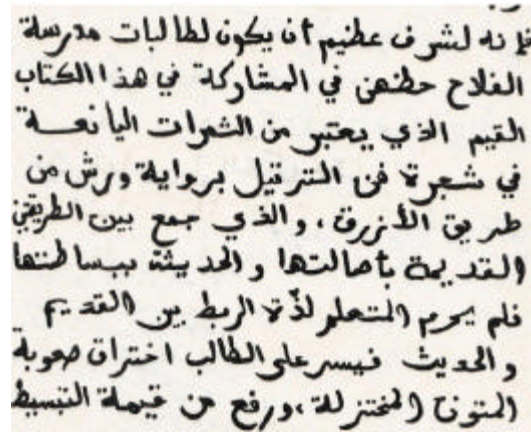 فإنه لشرف عظيم أن يكون لطالبات مدرسة
الفلاح حظهن في المشاركة في هذا الكتاب
القيم الذي يعتبر من الثمرات اليانعة
في شجرة فن الترتيل برواية ورش من
طريق الأزرق، والذي جمع بين الطريقتين
القديمة بأصالتها و الحديثة ببساطتها
فلم يحرم المتعلم لذّة الربط بين القديم
و الحديث فيسر على الطالب اختراق صعوبة
المتون المختزلة، ورفع من قيمة التبسيط